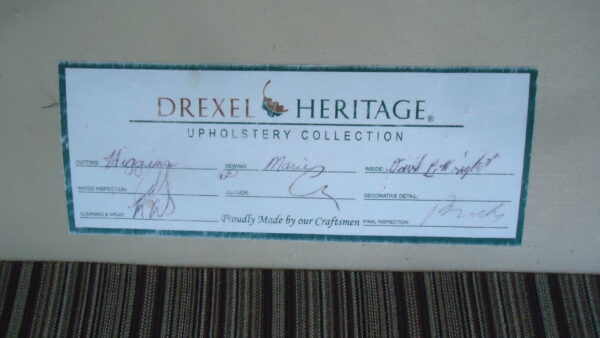 DREXEL HERITAGE®
UPHOLSTERY COLLECTION
CUTTING: Higgins SEWING: Maria INSIDE: David
INSIDE INSPECTION: OUTSIDE: DECORATIVE DETAIL:
CLEANING & WRAP: Proudly Made by our Craftsmen FINAL INSPECTION: